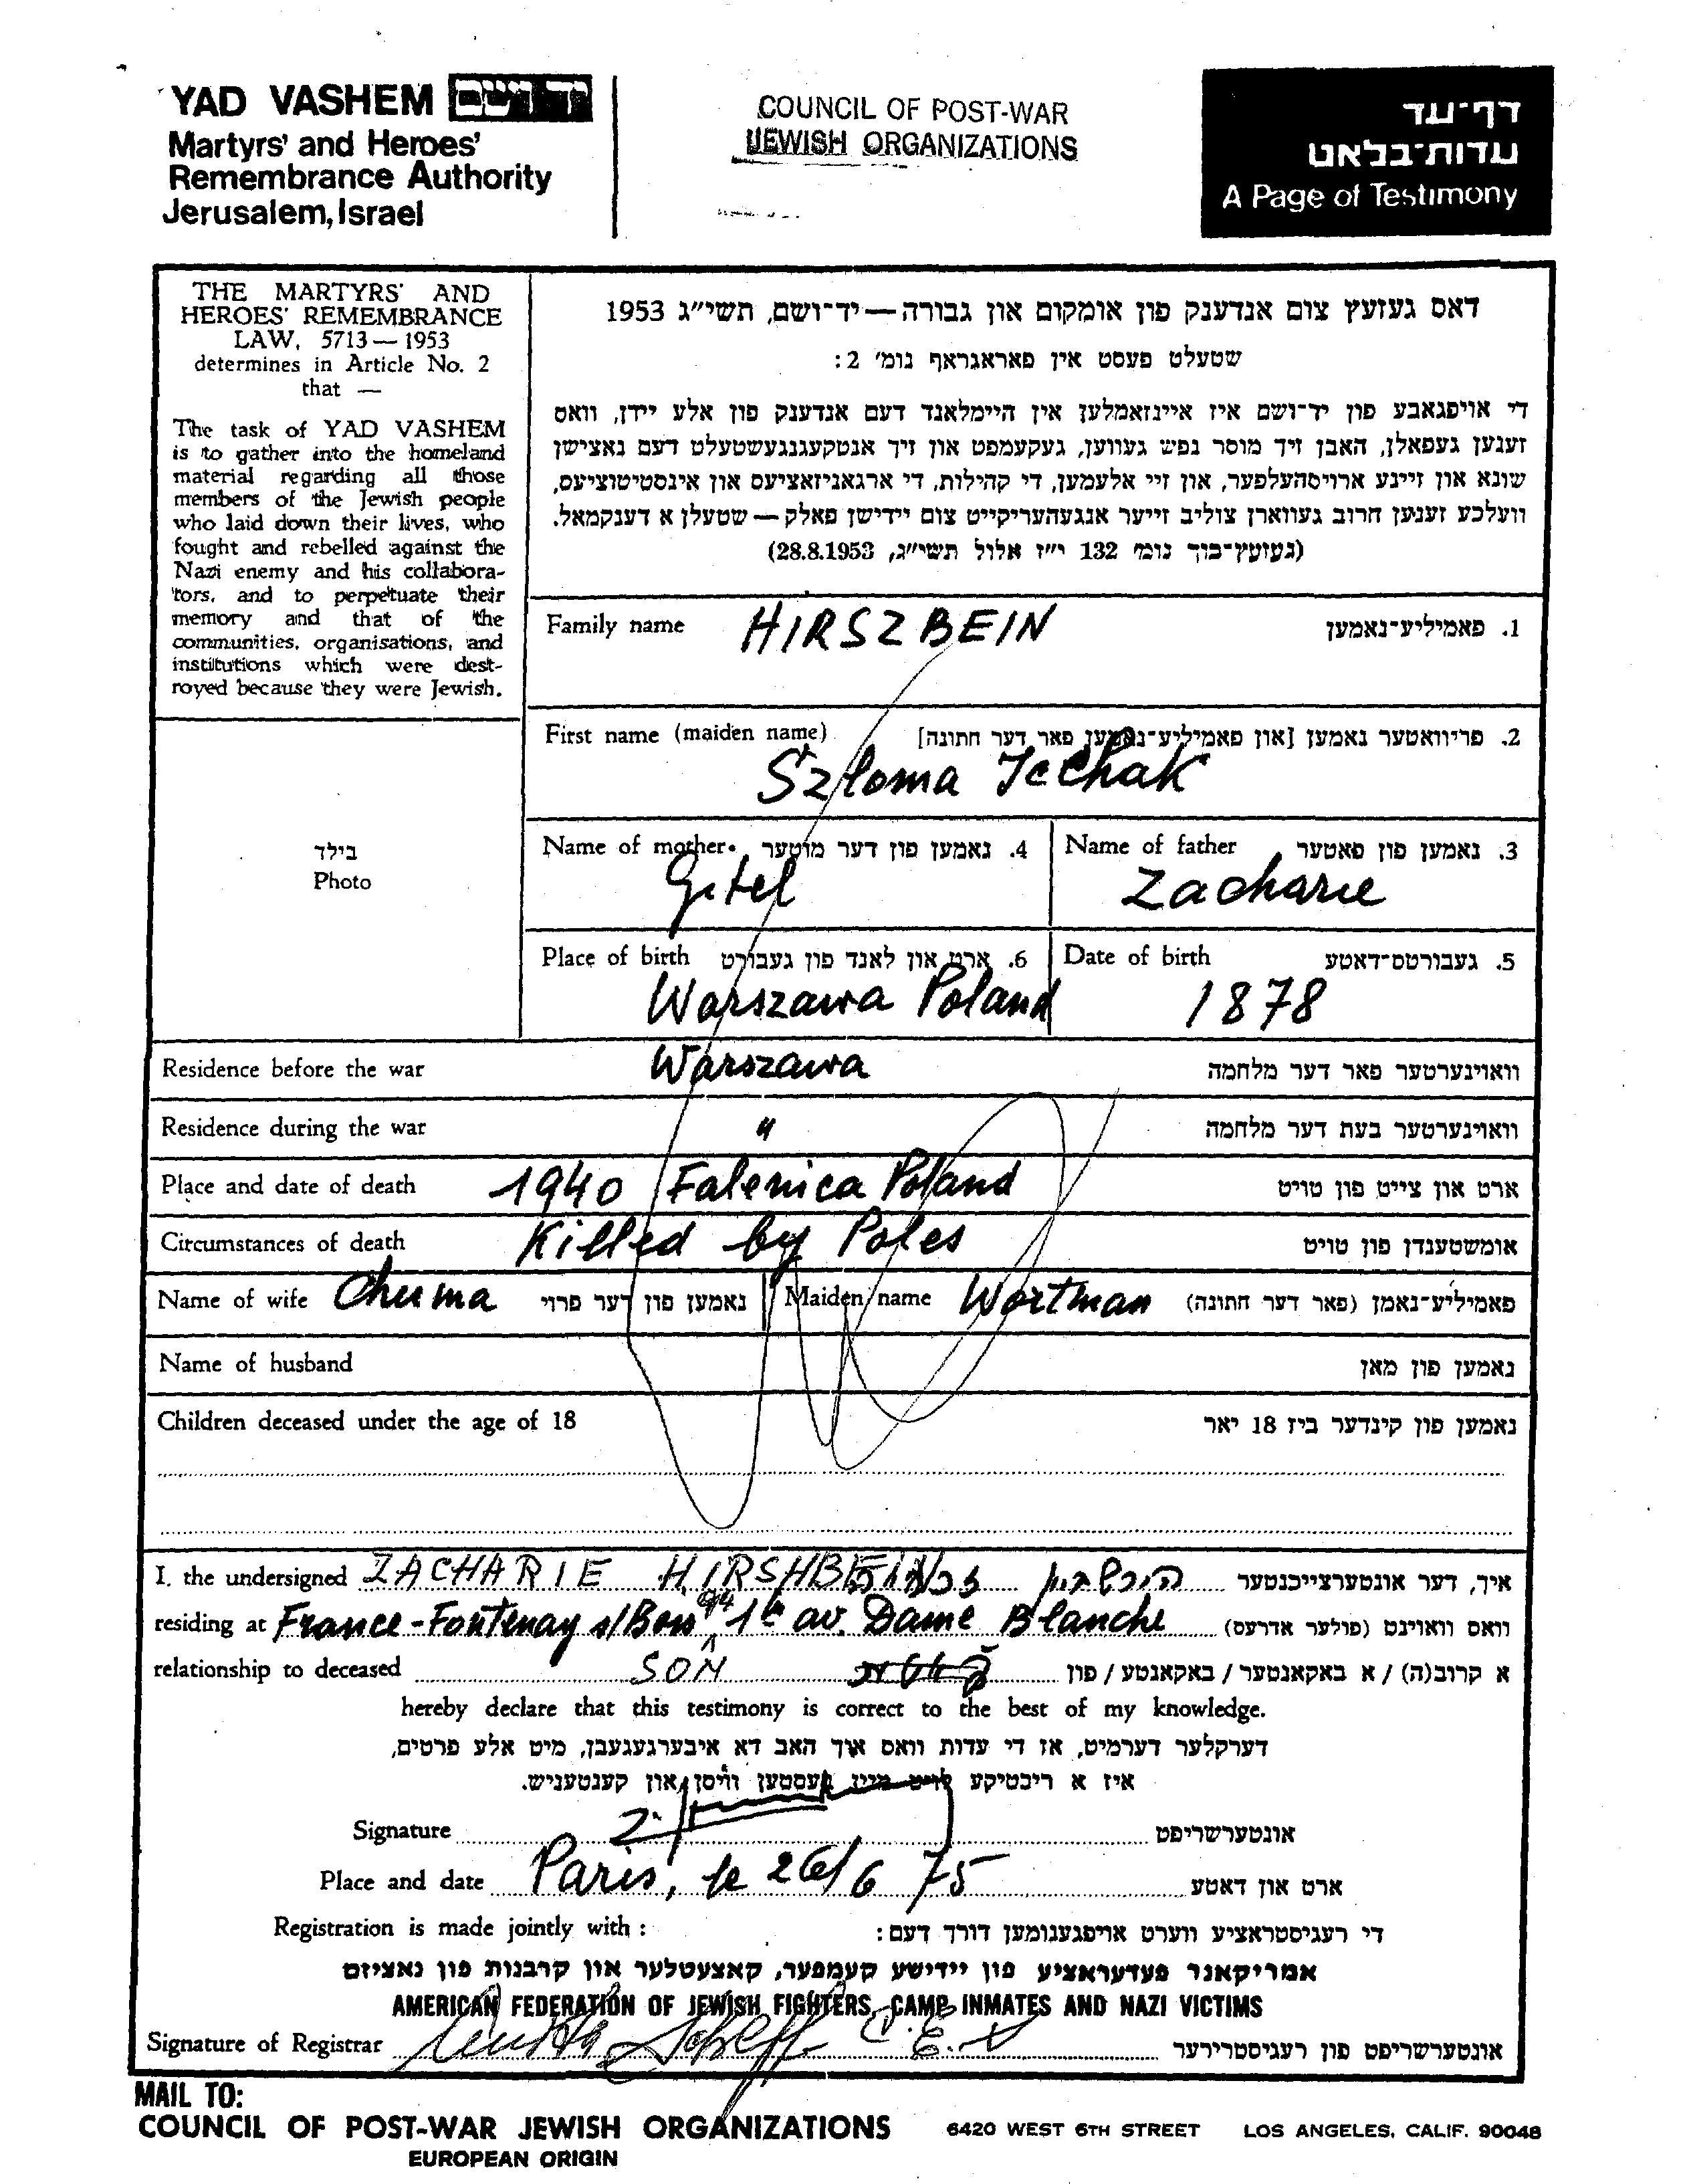 YAD VASHEM יד ושם
Martyrs' and Heroes'
Remembrance Authority
Jerusalem, Israel
COUNCIL OF POST-WAR
JEWISH ORGANIZATIONS
דף-עד
עדות-בלאט
A Page of Testimony
THE MARTYRS' AND
HEROES' REMEMBRANCE
LAW, 5713 — 1953
determines in Article No. 2
that —
The task of YAD VASHEM
is to gather into the homeland
material regarding all those
members of the Jewish people
who laid down their lives, who
fought and rebelled against the
Nazi enemy and his collabora-
tors, and to perpetuate their
memory and that of the
communities, organisations, and
institutions which were dest-
royed because they were Jewish.
דאס געזעץ צום אנדענק פון אומקום און גבורה — יד-ושם, תשי"ג 1953
שטעלט פעסט אין פאראגראף נומ' 2:
די אויפגאבע פון יד-ושם איז איינזאמלען אין היימלאנד דעם אנדענק פון אלע יידן, וואס
זענען געפאלן, האבן זיך מוסר נפש געווען, געקעמפט און זיך אנטקעגנגעשטעלט דעם נאצישן
שונא און זיינע ארויסהעלפער, און זיי אלעמען, די קהילות, די ארגאניזאציעס און אינסטיטוציעס,
וועלכע זענען חרוב געווארן צוליב זייער אנגעהעריקייט צום יידישן פאלק — שטעלן א דענקמאל.
(געזעץ-בוך נומ' 132 י"ז אלול תשי"ג, 28.8.1953)
Family name HIRSZBEIN 1. פאמיליע-נאמען
First name (maiden name) 2. פריוואטער נאמען [און פאמיליע-נאמען פאר דער חתונה]
Szloma Icchak
בילד
Photo
Name of mother 4. נאמען פון דער מוטער
Gitel
Name of father 3. נאמען פון פאטער
Zacharie
Place of birth 6. ארט און לאנד פון געבורט
Warszawa Poland
Date of birth 5. געבורטס-דאטע
1878
Residence before the war Warszawa וואוינערטער פאר דער מלחמה
Residence during the war " וואוינערטער בעת דער מלחמה
Place and date of death 1940 Falenica Poland ארט און צייט פון טויט
Circumstances of death Killed by Poles אומשטענדן פון טויט
Name of wife Chuma נאמען פון דער פרוי Maiden name Wortman פאמיליע-נאמן (פאר דער חתונה)
Name of husband נאמען פון מאן
Children deceased under the age of 18 נאמען פון קינדער ביז 18 יאר
I, the undersigned ZACHARIE HIRSHBEIN הירשביין איך, דער אונטערצייכנטער
residing at France - Fontenay s/Bois 94 1 av. Dame Blanche וואס וואוינט (פולער אדרעס)
relationship to deceased SON א קרוב(ה) / א באקאנטער / באקאנטע / פון
hereby declare that this testimony is correct to the best of my knowledge.
דערקלער דערמיט, אז די עדות וואס איך האב דא איבערגעגעבן, מיט אלע פרטים,
איז א ריכטיקע לויט מיין בעסטען וויסן און קענטעניש.
Signature אונטערשריפט
Place and date Paris, le 26/6 75 ארט און דאטע
Registration is made jointly with : די רעגיסטראציע ווערט אויפגענומען דורך דעם:
אמריקאנר פעדעראציע פון יידישע קעמפער, קאצעטלער און קרבנות פון נאציזם
AMERICAN FEDERATION OF JEWISH FIGHTERS, CAMP INMATES AND NAZI VICTIMS
Signature of Registrar אונטערשריפט פון רעגיסטרירער
MAIL TO:
COUNCIL OF POST-WAR JEWISH ORGANIZATIONS 6420 WEST 6TH STREET LOS ANGELES, CALIF. 90048
EUROPEAN ORIGIN